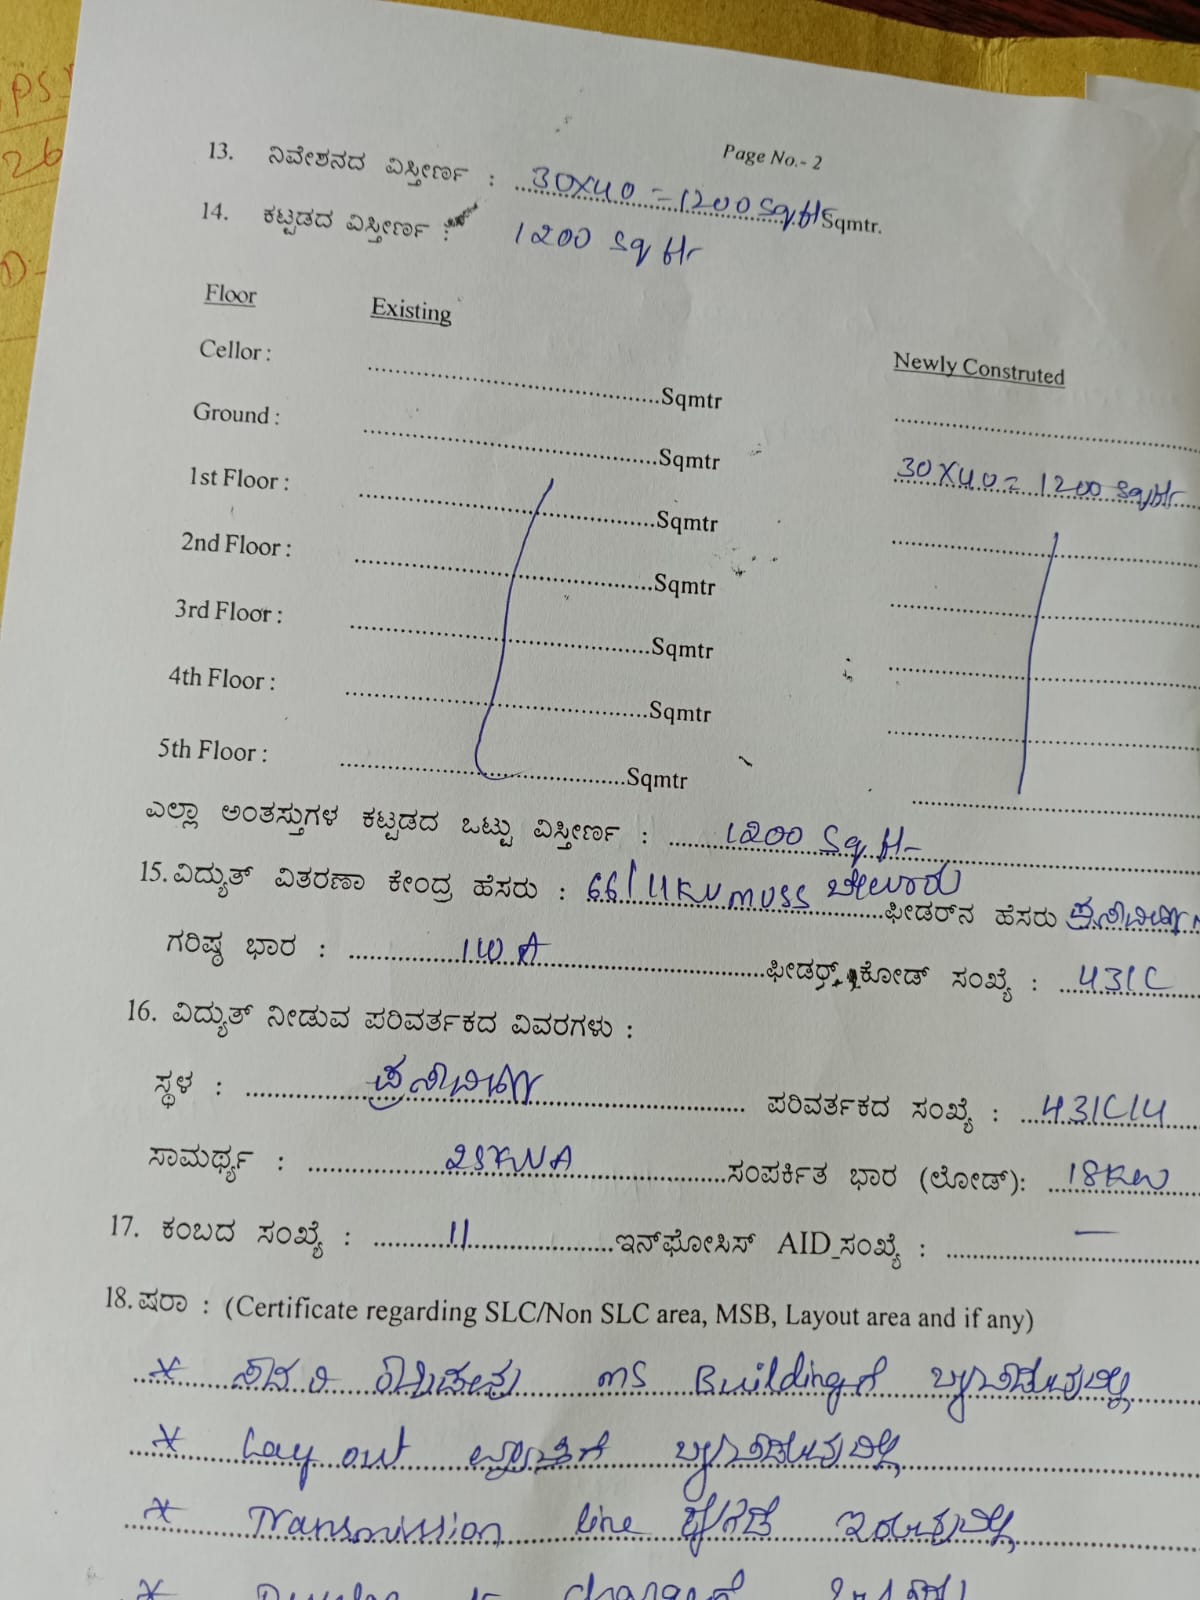 Page No.- 2
13. ನಿವೇಶನದ ವಿಸ್ತೀರ್ಣ : 30X40 = 1200 Sqft Sqmtr.
14. ಕಟ್ಟಡದ ವಿಸ್ತೀರ್ಣ : 1200 Sq ft
Floor Existing Newly Construted
Cellor : Sqmtr
Ground : Sqmtr 30X40= 1200 Sqft
1st Floor : Sqmtr
2nd Floor : Sqmtr
3rd Floor : Sqmtr
4th Floor : Sqmtr
5th Floor : Sqmtr
ಎಲ್ಲಾ ಅಂತಸ್ತುಗಳ ಕಟ್ಟಡದ ಒಟ್ಟು ವಿಸ್ತೀರ್ಣ : 1200 Sq ft
15. ವಿದ್ಯುತ್ ವಿತರಣಾ ಕೇಂದ್ರ ಹೆಸರು : 66/11KV MUSS ಬೇಲೂರು ಫೀಡರ್‌ನ ಹೆಸರು
ಗರಿಷ್ಠ ಭಾರ : 110 A ಫೀಡರ್ ಕೋಡ್ ಸಂಖ್ಯೆ : 431C
16. ವಿದ್ಯುತ್ ನೀಡುವ ಪರಿವರ್ತಕದ ವಿವರಗಳು :
ಸ್ಥಳ : ಪರಿವರ್ತಕದ ಸಂಖ್ಯೆ :
ಸಾಮರ್ಥ್ಯ : 25KVA ಸಂಪರ್ಕಿತ ಭಾರ (ಲೋಡ್): 18KW
17. ಕಂಬದ ಸಂಖ್ಯೆ : 11 ಇನ್‌ಫೋಸಿಸ್ AID ಸಂಖ್ಯೆ : —
18. ಷರಾ : (Certificate regarding SLC/Non SLC area, MSB, Layout area and if any)
* ಸದರಿ MS Buildingಗೆ
* Lay out
* Transmission line ಇರುವುದಿಲ್ಲ
PS
26